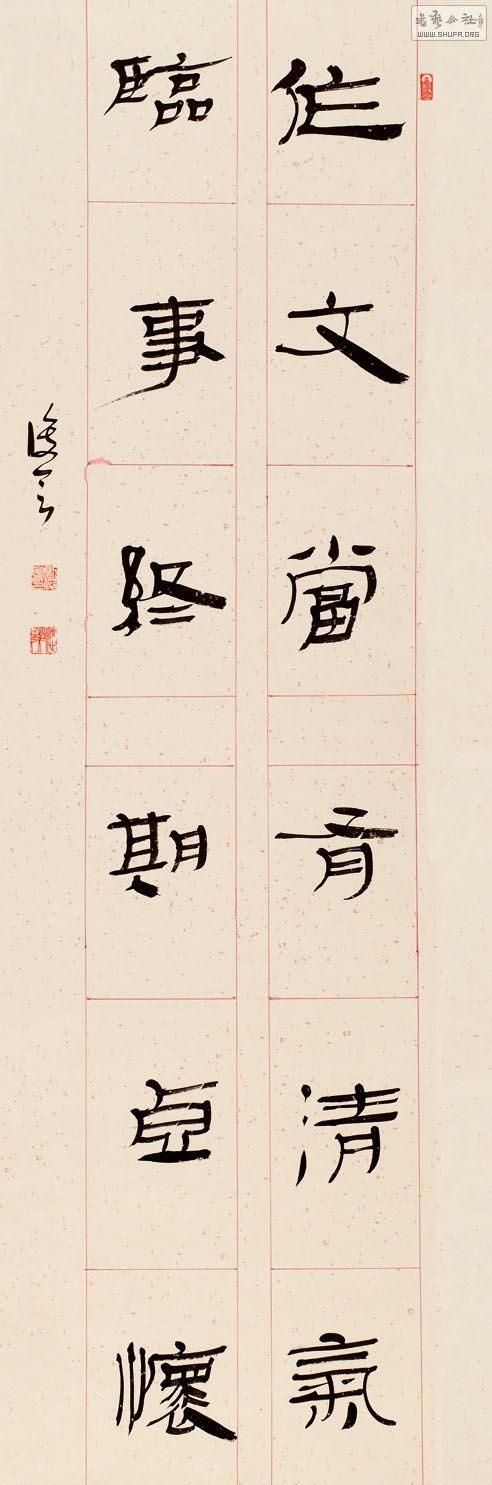 作文當有清氣
臨事終期虛懷
書藝公社
WWW.SHUFA.ORG